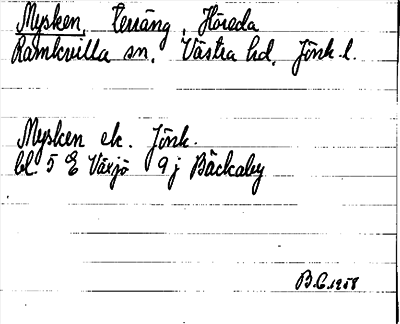 Mysken, terräng, Höreda
Ramkvilla sn, Västra hd, Jönk. l.
Mysken ek. Jönk.
bl. 5 E Växjö 9 j Bäckaby
B.C. 1958